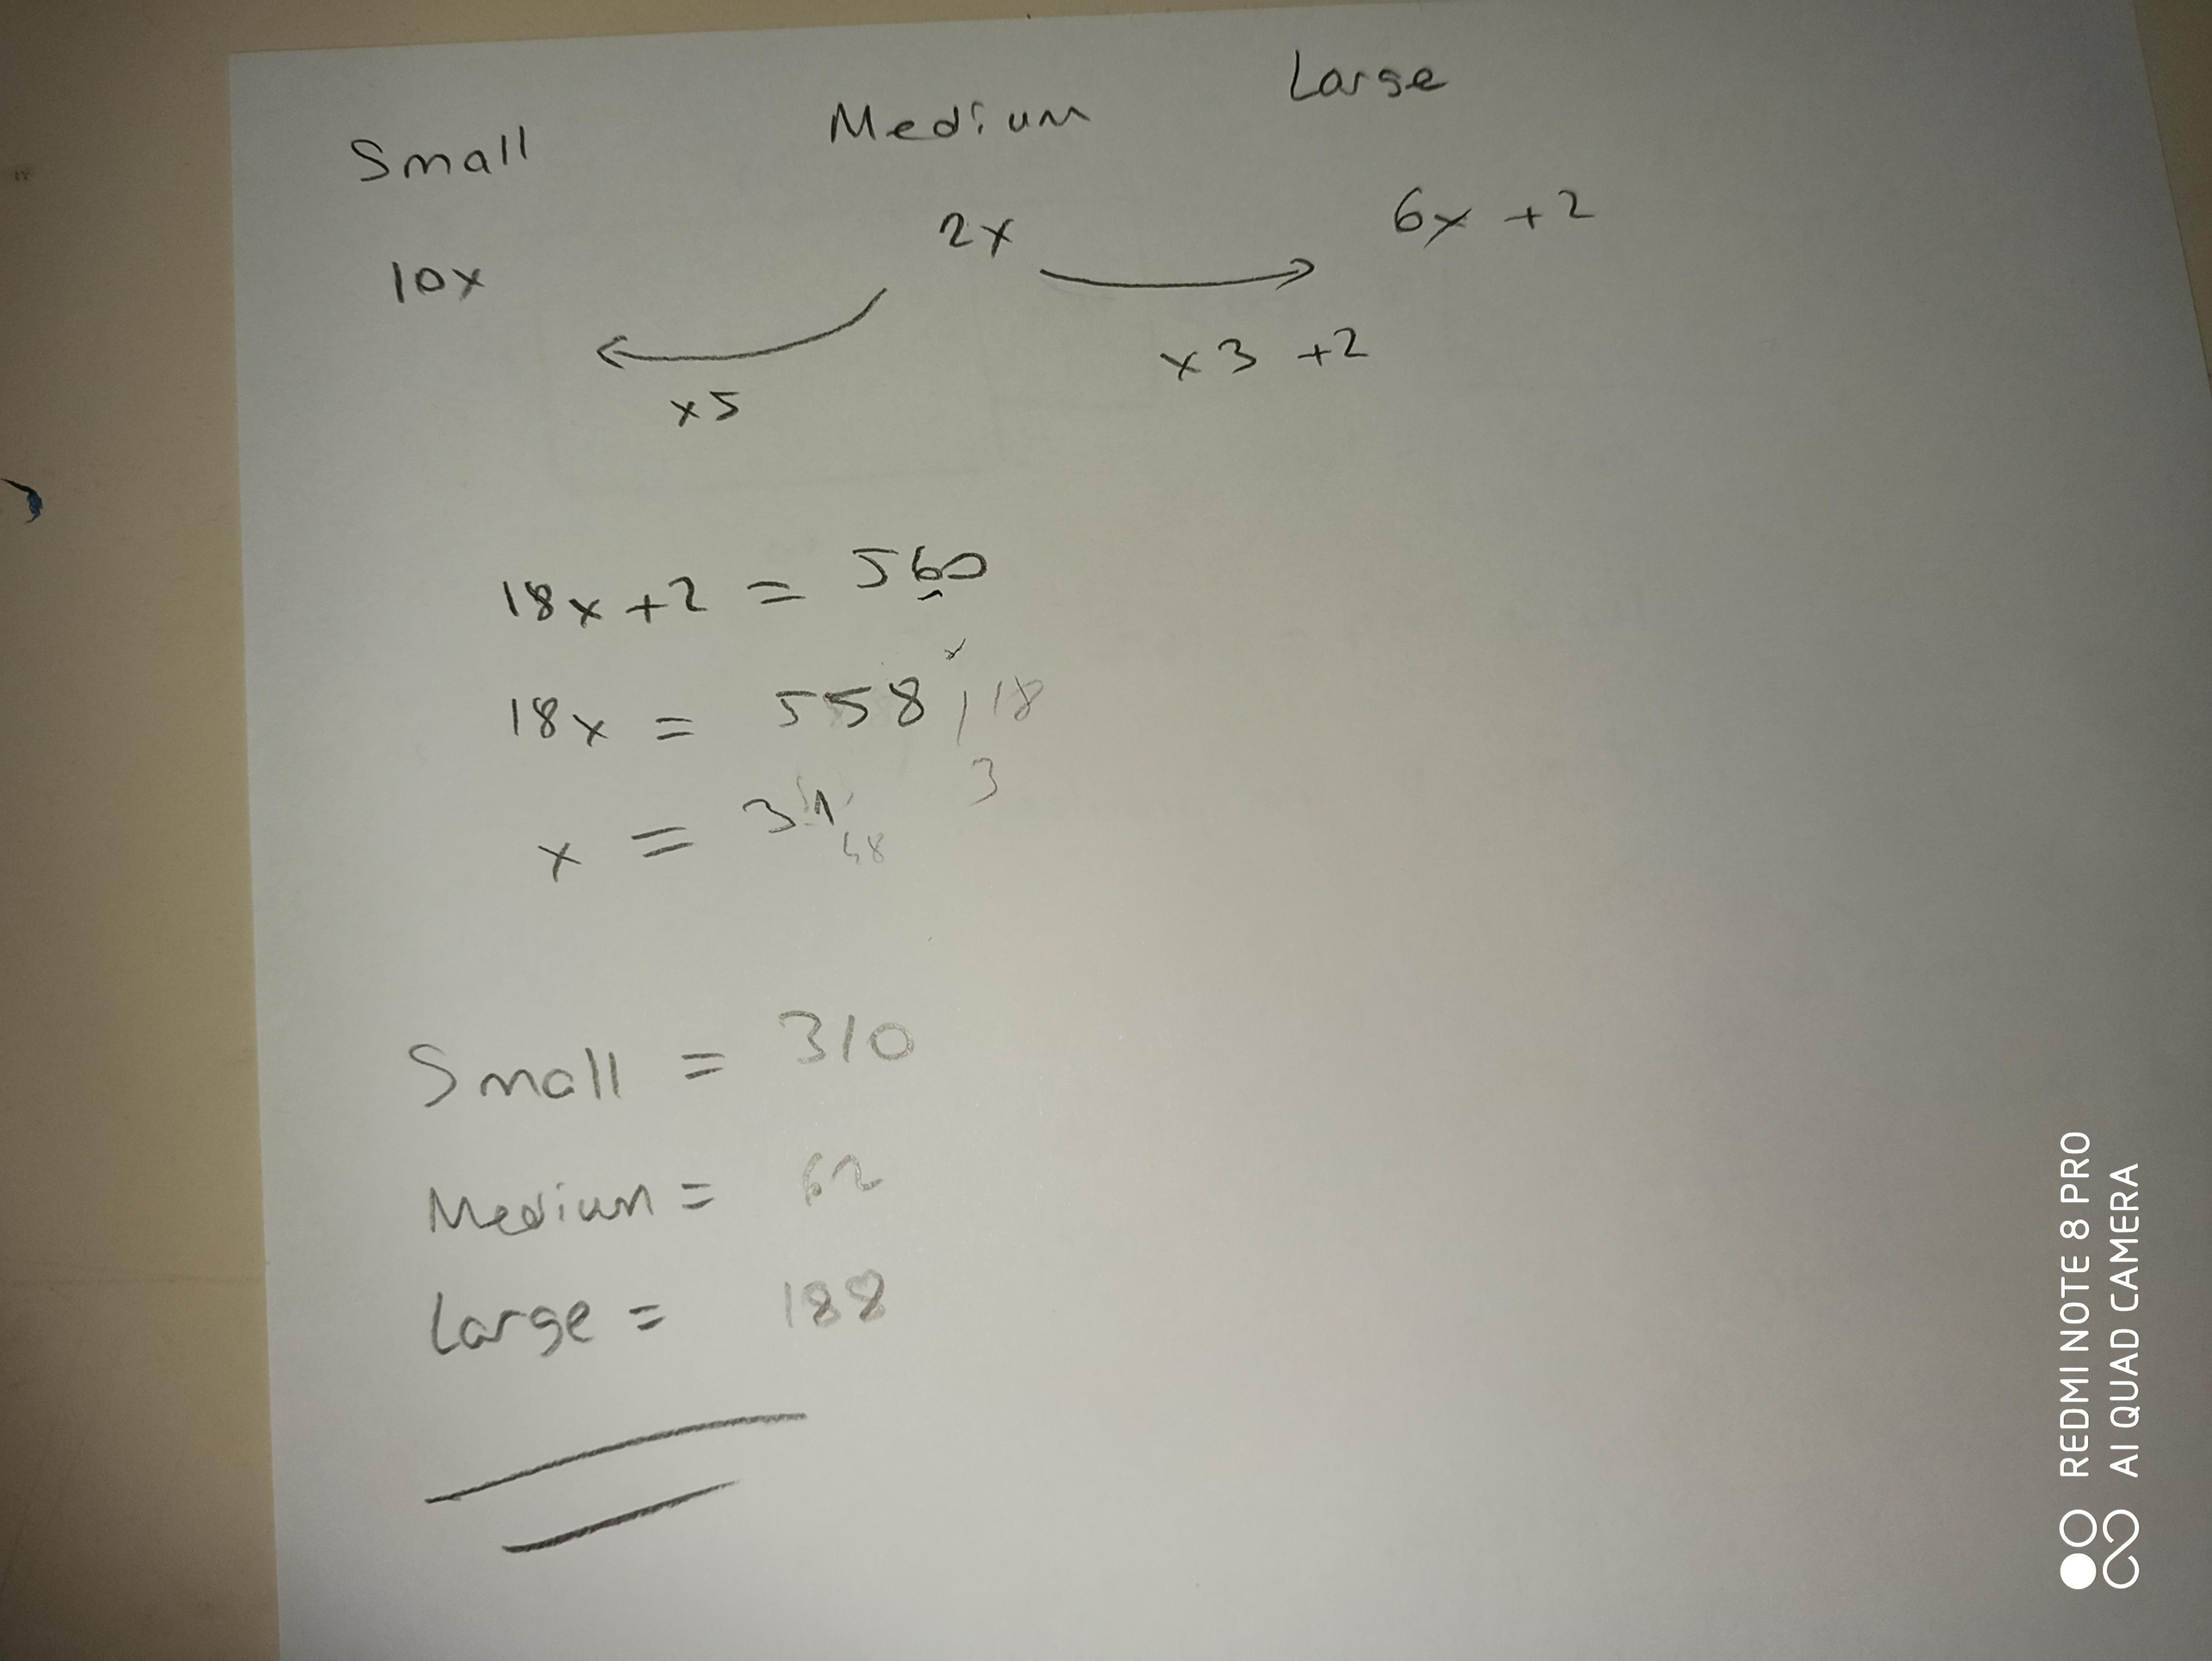 Small Medium Large
10x 2x 6x +2
x5 x3 +2
18x+2 = 560
18x = 558 / 18
3
x = 31
68
Small = 310
Medium = 62
Large = 188
REDMI NOTE 8 PRO
AI QUAD CAMERA